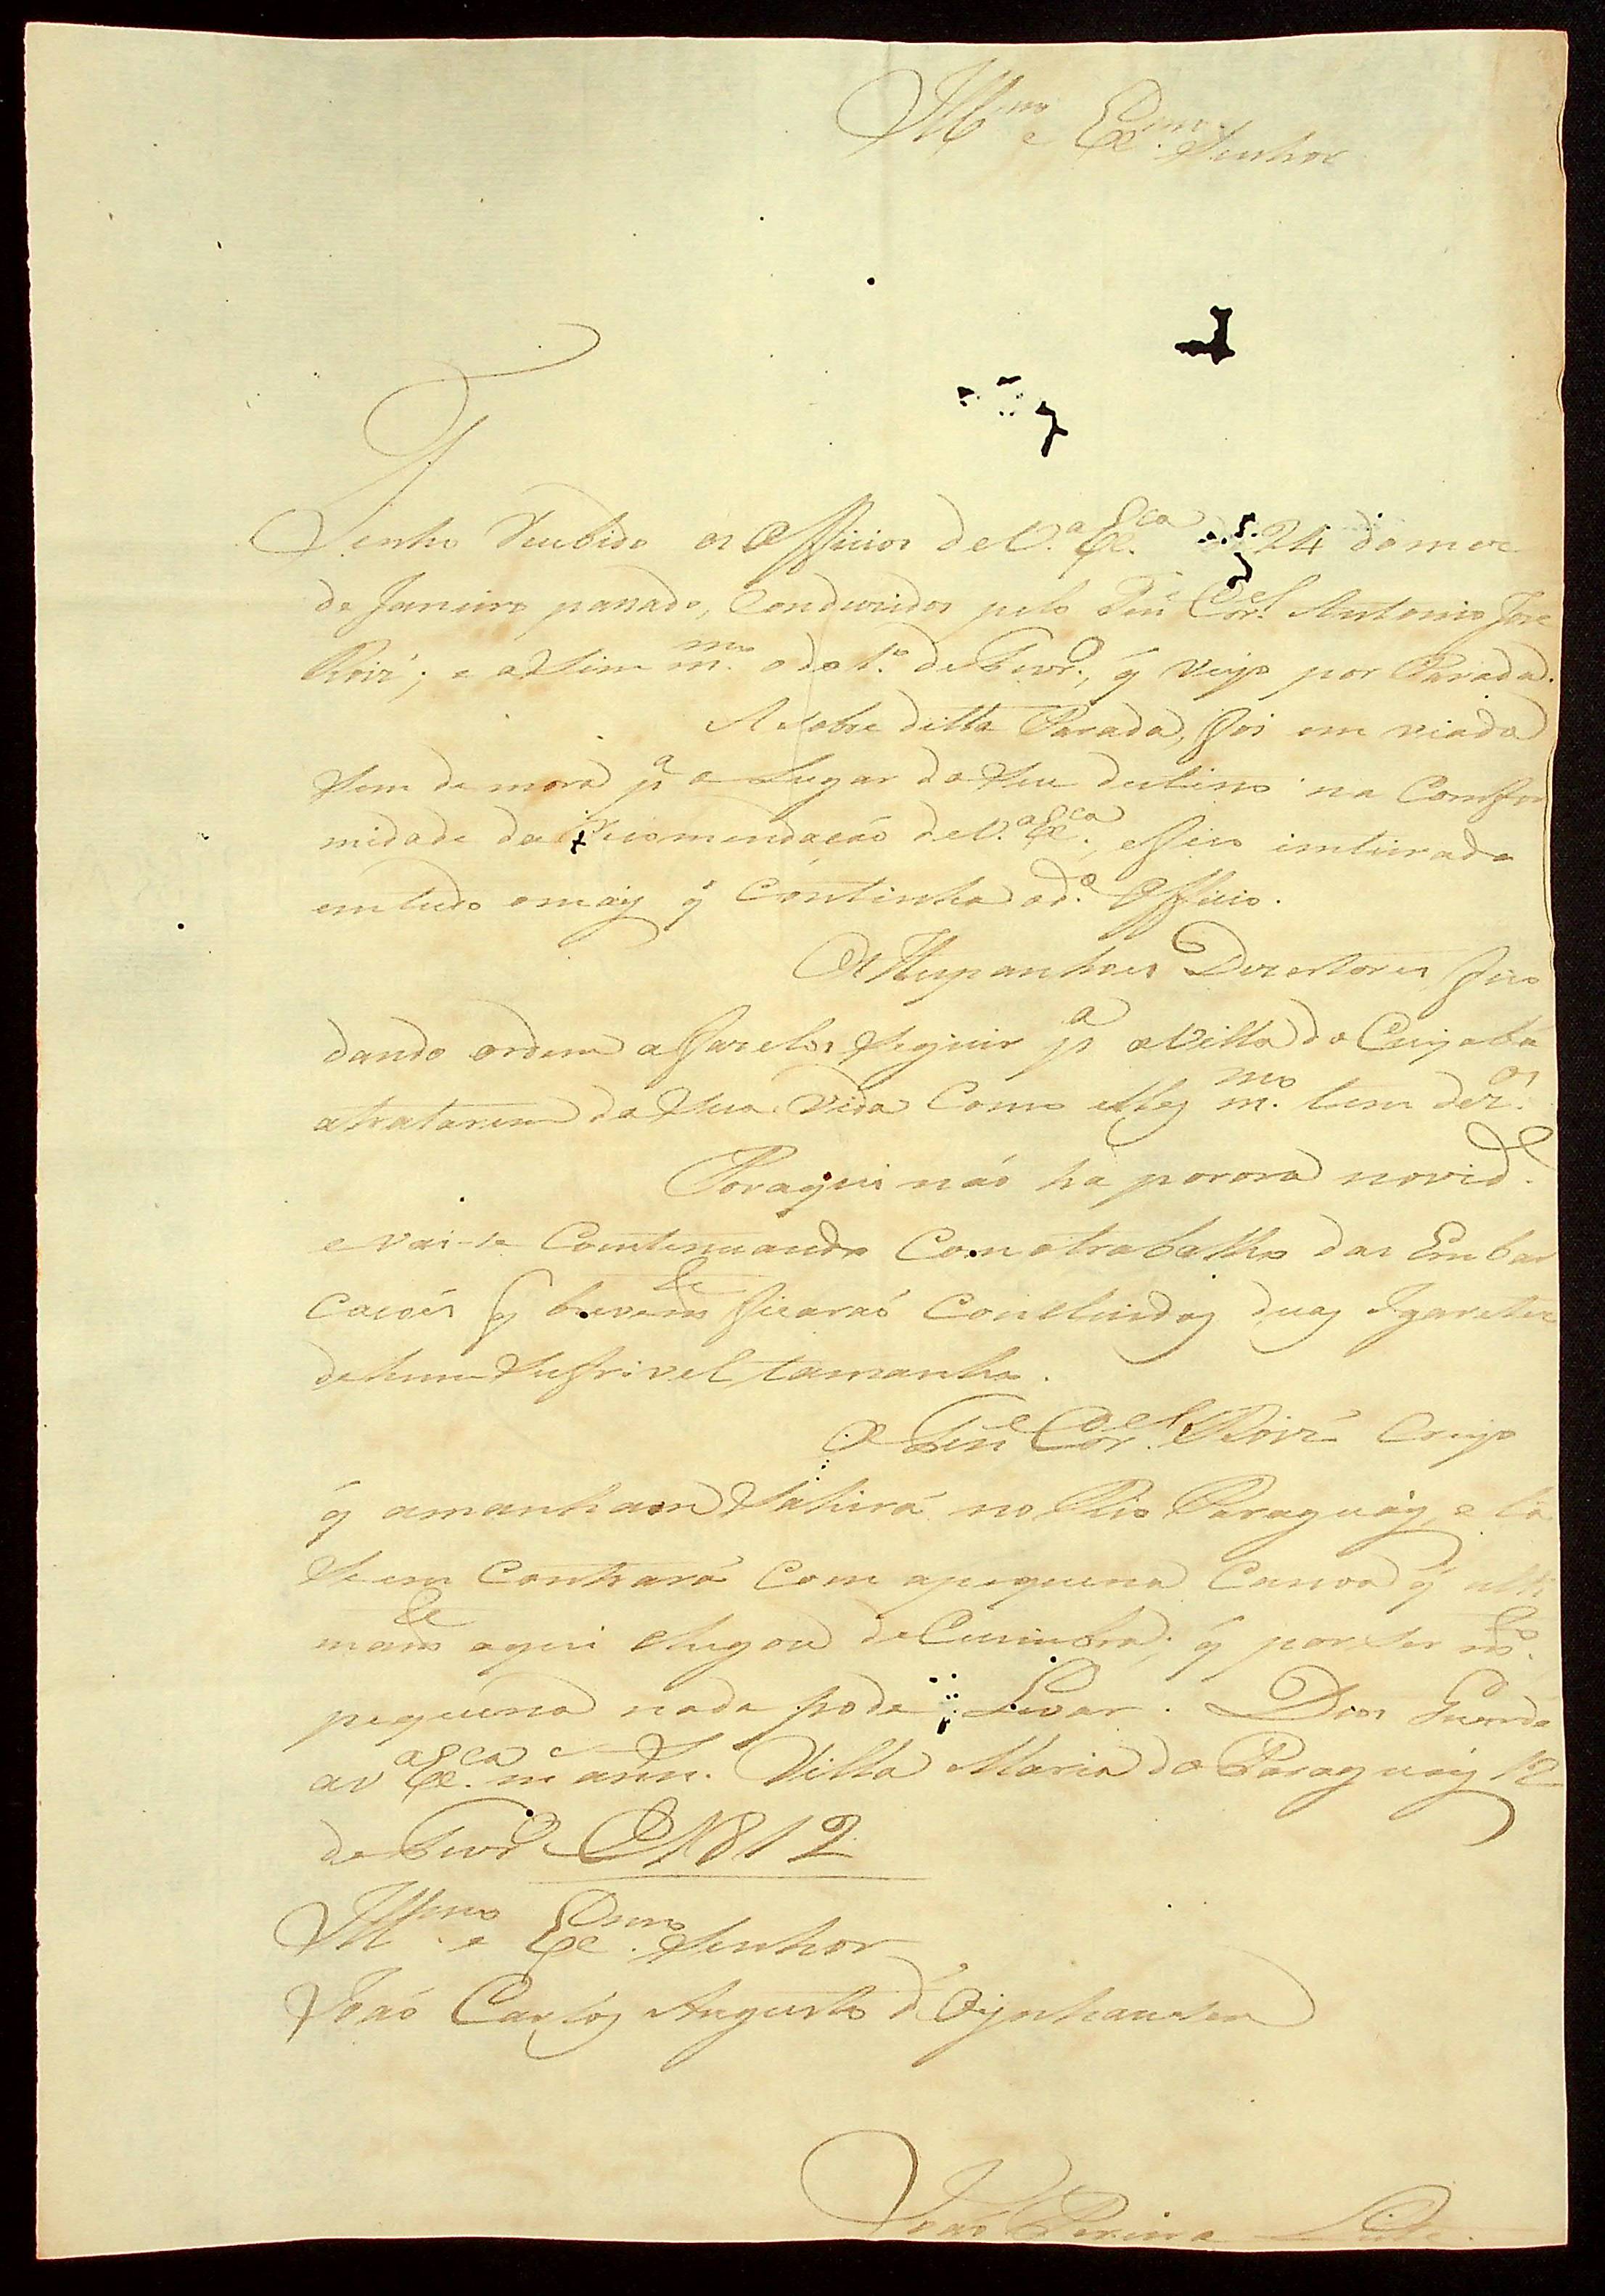 Ill.mo e Ex.mo Senhor
Tenho Recebido os Officios de V.a Ex.ca de 24 do mez
de Janeiro passado, Conduzidos pelo Ten.e Cor.el Antonio Jose
Roiz'; e assim m.mo o do 1.o de Fevr.o, q̃ veyo por Parada.
A sobre ditta Parada, foi em viada
Sem de mora p.a o Lugar do Seu destino na Confor
midade da Recomendação de V.a Ex.ca, e fico inteirado
em tudo o mais q̃ Continha o d.o Officio.
Os Hespanhoes Dezertores fico
dando ordem a fazelos Seguir p.a a Villa do Cuyabá
a tratarem da Sua Vida Como elles m.mo tem dez.os
Por aqui não ha por ora novid.e
e vai-se Continuando Com o trabalho das Embar
cacoẽs q̃ brevem.te ficaraó Concluidas duas Igarites
de hum Sufrivel tamanho.
O Ten.e Cor.el Roiz' Creyo
q̃ amanham Sahirá no Rio Paraguáy, e lá
Se em Contrará Com a pequena Canoa q̃ ulti
mam.te aqui chegou de Cuimbra; q̃ por ser m.to
pequena nada pode Levar. Deos Guarde
a V.a Ex.ca m.s ann.s Villa Maria do Paraguáy 12
de Fevr.o de 1812
Ill.mo e Ex.mo Senhor
Joaó Carlos Augusto d'Oÿnhausen
Joaó Pereira Leite.